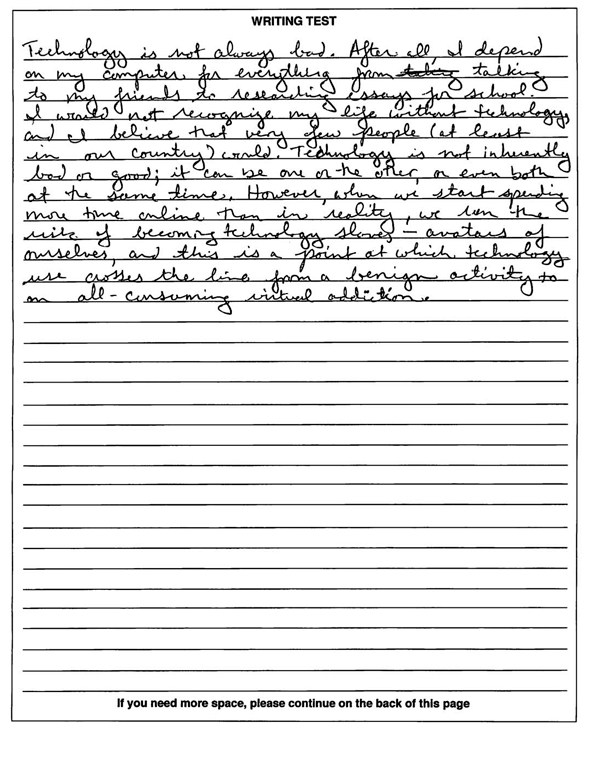 WRITING TEST
Technology is not always bad. After all, I depend
on my computer for everything from taking talking
to my friends to researching essays for school.
I would not recognize my life without technology,
and I believe that very few people (at least
in our country) could. Technology is not inherently
bad or good; it can be one or the other, or even both
at the same time. However, when we start spending
more time online than in reality, we run the
risk of becoming technology slaves – avatars of
ourselves, and this is a point at which technology
use crosses the line from a benign activity to
an all-consuming virtual addiction.
If you need more space, please continue on the back of this page